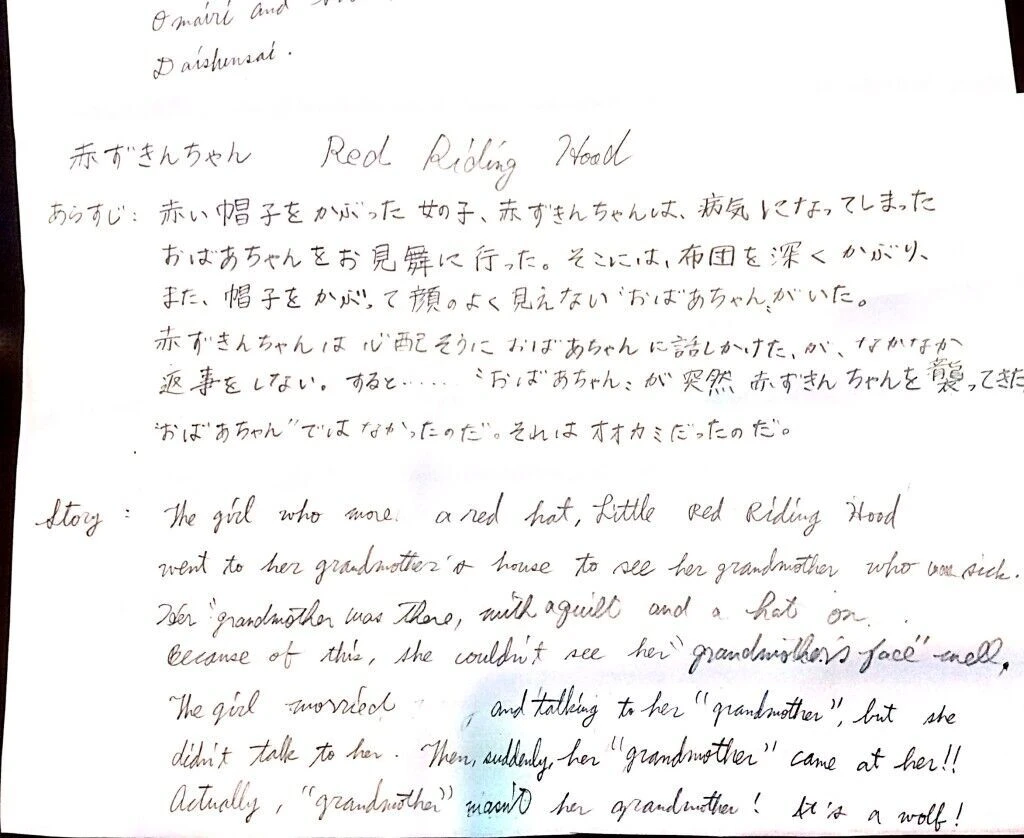 Omairi and
Daishensai.
赤ずきんちゃん Red Riding Hood
あらすじ: 赤い帽子をかぶった女の子、赤ずきんちゃんは、病気になってしまった
おばあちゃんをお見舞に行った。そこには、布団を深くかぶり、
また、帽子をかぶって顔のよく見えない“おばあちゃん〟がいた。
赤ずきんちゃんは心配そうにおばあちゃんに話しかけた、が、なかなか
返事をしない。すると…… “おばあちゃん〟が突然赤ずきんちゃんを襲ってきた
“おばあちゃん”ではなかったのだ。それはオオカミだったのだ。
Story : The girl who wore a red hat, Little Red Riding Hood
went to her grandmother's house to see her grandmother who was sick.
Her "grandmother was there, with a quilt and a hat on.
Because of this, she couldn't see her "grandmother's face" well.
The girl worried , and talking to her "grandmother", but she
didn't talk to her. Then, suddenly, her "grandmother" came at her!!
Actually, "grandmother" wasn't her grandmother! It's a wolf!